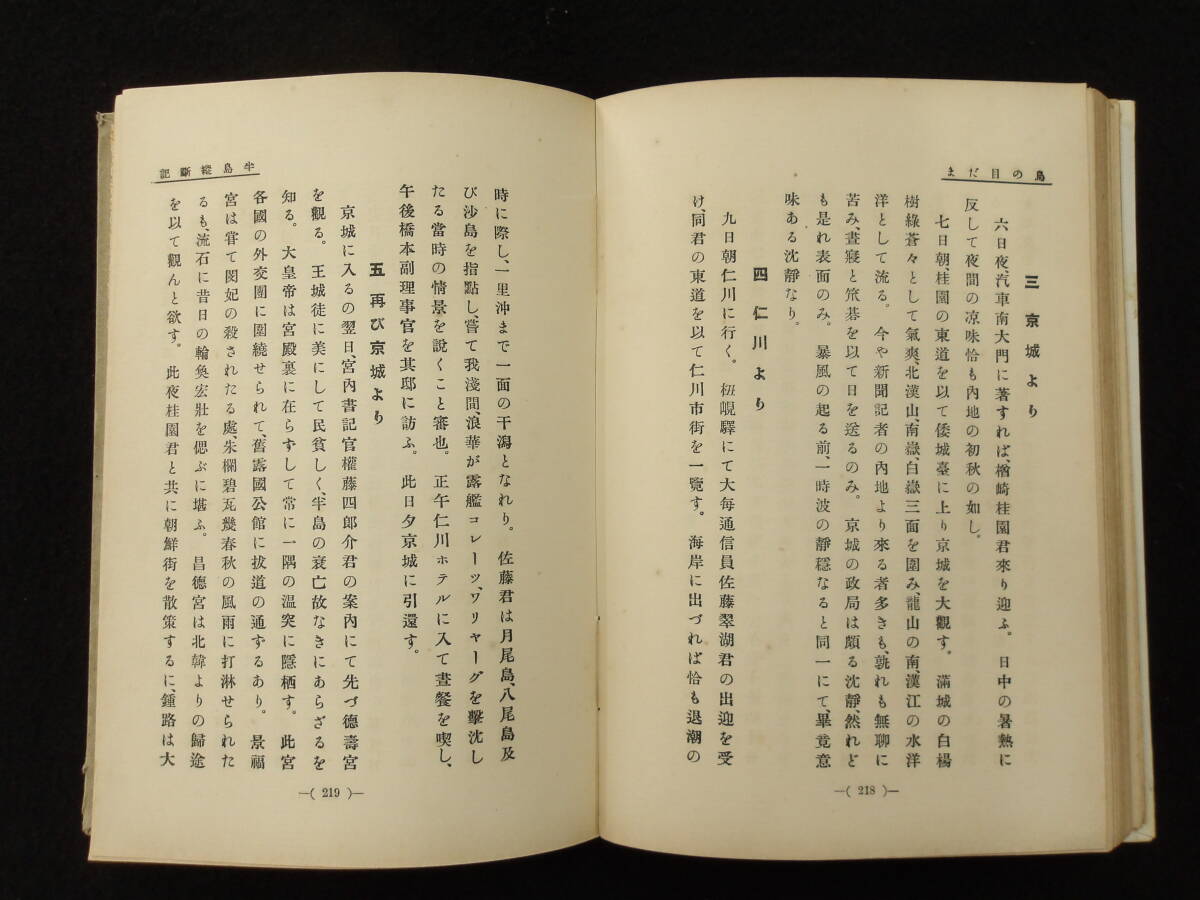 島の目だま
三 京城より
六日夜、汽車南大門に著すれば、楢崎桂園君來り迎ふ。 日中の暑熱に
反して夜間の凉味恰も內地の初秋の如し。
七日朝、桂園の東道を以て倭城臺に上り京城を大觀す。 滿城の白楊
樹綠蒼々として氣爽、北漢山、南嶽、白嶽三面を圍み、龍山の南、漢江の水洋
洋として流る。 今や新聞記者の內地より來る者多きも、孰れも無聊に
苦み、晝寢と笊碁を以て日を送るのみ。 京城の政局は頗る沈靜、然れど
も是れ表面のみ。 暴風の起る前、一時波の靜穩なると同一にて、畢竟意
味ある沈靜なり。
四 仁川より
九日朝仁川に行く。 杻峴驛にて大每通信員佐藤翠湖君の出迎を受
け、同君の東道を以て仁川市街を一覽す。 海岸に出づれば恰も退潮の
—( 218 )—
半島縱斷記
時に際し、一里沖まで一面の干潟となれり。 佐藤君は月尾島、八尾島及
び沙島を指點し、嘗て我淺間、浪華が露艦コレーツ、ワリヤーグを擊沈し
たる當時の情景を說くこと審也。 正午仁川ホテルに入て晝餐を喫し、
午後橋本副理事官を其邸に訪ふ。 此日夕京城に引還す。
五 再び京城より
京城に入るの翌日、宮內書記官權藤四郎介君の案內にて先づ德壽宮
を觀る。 王城徒に美にして民貧しく、半島の衰亡故なきにあらざるを
知る。 大皇帝は宮殿裏に在らずして常に一隅の温突に隱栖す。 此宮
各國の外交團に圍繞せられて、舊露國公館に拔道の通ずるあり。 景福
宮は甞て閔妃の殺されたる處、朱欄碧瓦幾春秋の風雨に打淋せられた
るも、流石に昔日の輪奐宏壯を偲ぶに堪ふ。 昌德宮は北韓よりの歸途
を以て觀んと欲す。 此夜桂園君と共に朝鮮街を散策するに、鍾路は大
—( 219 )—